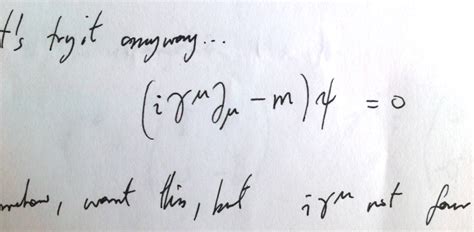 t's try it anyway...
(iγ^μ∂_μ - m)ψ = 0
mehow, want this, but iγ^μ not four